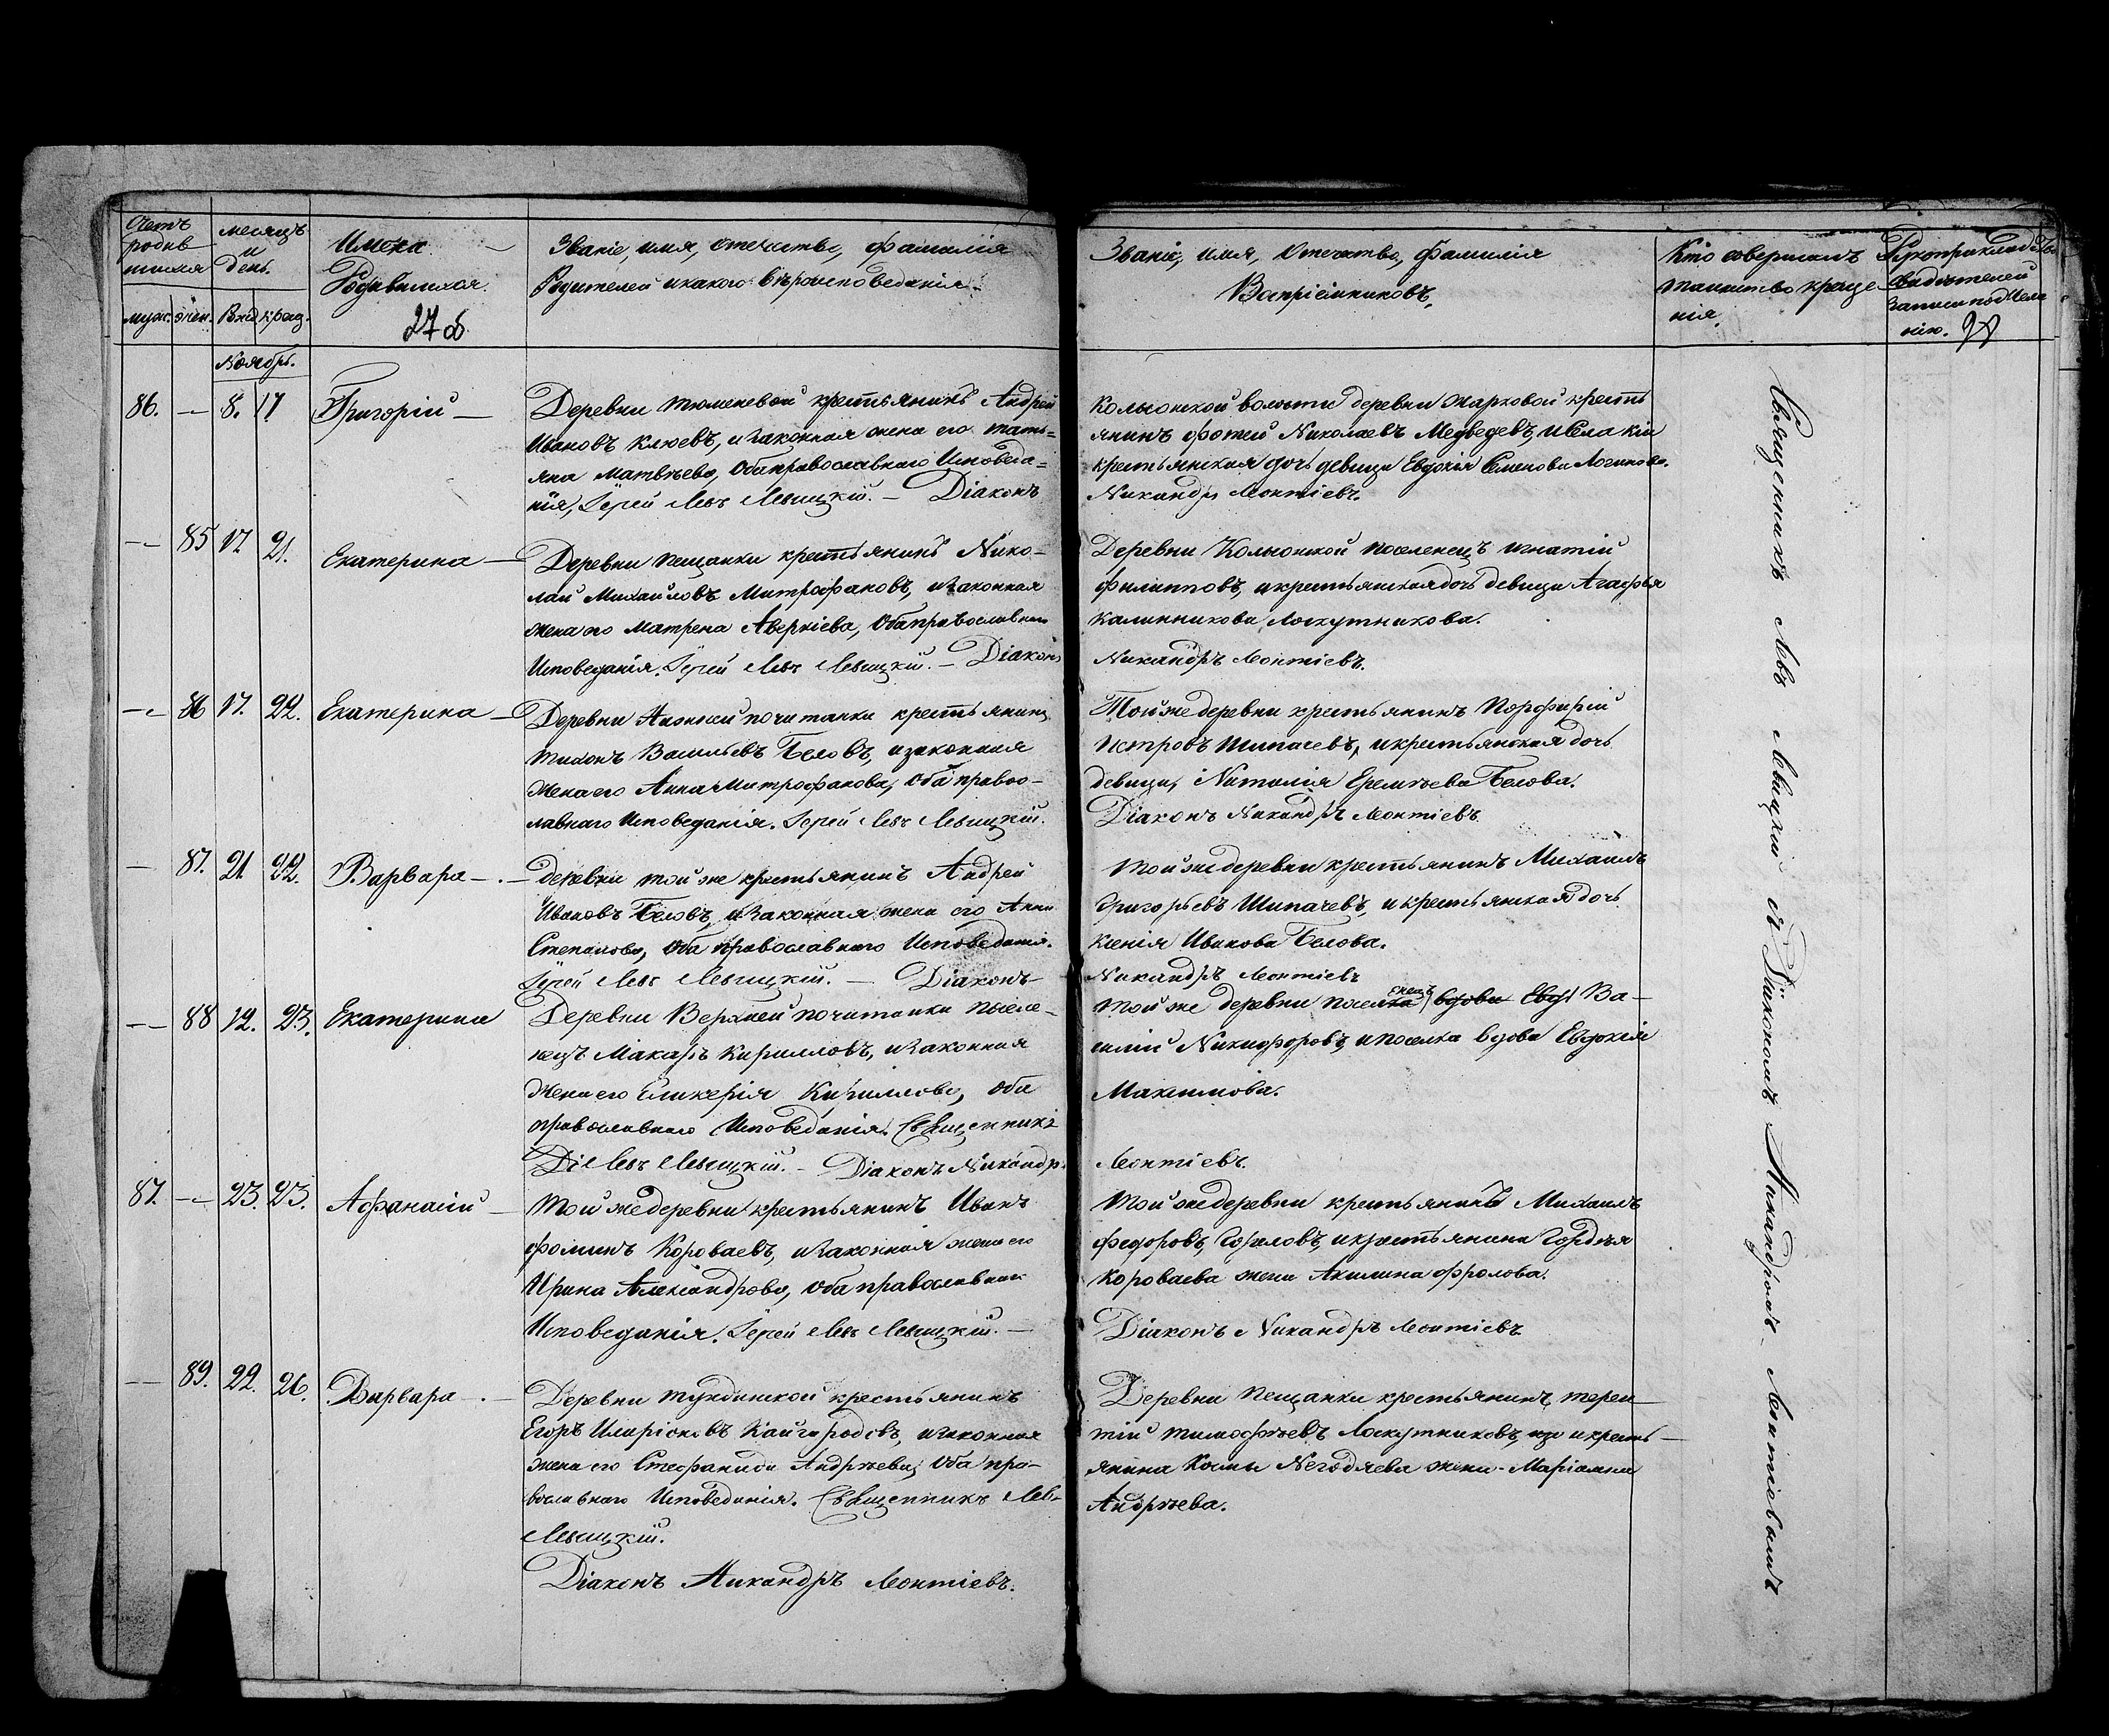 Счетъ родив шихся
муж. жен.
месяцъ и день.
Рож крещ.
Имена Родившихся.
27 об
Званіе, имя, отечество, фамилія
Родителей и какого вѣроисповеданія
Званіе, имя, Отечество, Фамилія
Воспріемниковъ,
Кто совершалъ
таинство креще-
нія.
Рукоприкладство
свидѣтелей
записи по Жела
нію. 28
Ноябрь.
86. — 8. 17 Григорій —
Деревни Тюменевой крестьянинъ Андрей
Ивановъ Клюевъ, и законная жена его Тать=
яна Матвѣева, Оба православнаго Исповеда=
нія, Іерей Левъ Левицкій. — Діаконъ
Колыонской волости деревни Жарковой кресть
янинъ Фотей Николаевъ Медведевъ, и Села
крестьянская дочь девица Евдокія Семенова Логинова.
Никандръ Леонтіевъ.
— 85 17 21. Екатерина —
Деревни Пещанки крестьянинъ Нико-
лай Михайловъ Митрофановъ, и законная
жена его Матрена Аверкіева, Оба православнаго
Исповеданія. Іерей Левъ Левицкій. — Діаконъ
Деревни Колыонской поселенецъ Игнатій
Филипповъ, и крестьянская дочь девица Агафья
Калинникова Лоскутникова.
Никандръ Леонтіевъ.
— 86 17. 22. Екатерина —
Деревни почитанки крестьянинъ
Тихонъ Васильевъ Беловъ, и законная
жена его Анна Митрофанова, Оба правос-
лавнаго Исповеданія. Іерей Левъ Левицкій.
Той же деревни крестьянинъ Порфирій
Петровъ Шипачевъ, и крестьянская дочь
девица, Наталія Еремѣева Белова.
Діаконъ Никандръ Леонтіевъ
— 87. 21. 22. Варвара —
деревни той же крестьянинъ Андрей
Ивановъ Беловъ, и законная жена его Анна
Степанова, Оба православнаго Исповеданія.
Іерей Левъ Левицкій. — Діаконъ
Той же деревни крестьянинъ Михаилъ
Григорьевъ Шипачевъ, и крестьянская дочь
Ксенія Иванова Белова.
Никандръ Леонтіевъ
— 88 12. 23. Екатерина
Деревни Верхней почитанки поселе-
нецъ Макаръ Кирилловъ, и законная
жена его Гликерія Кириллова, Оба
православнаго Исповеданія. Священникъ
Левъ Левицкій. — Діаконъ Никандръ
Той же деревни поселка вдова Евд Ва-
силій Никифоровъ, и поселка вдова Евдокія
Максимова.
Леонтіевъ.
87. — 23. 23. Афанасій —
Той же деревни крестьянинъ Иванъ
Фоминъ Короваевъ, и законная жена его
Ирина Александрова, Оба православнаго
Исповеданія. Іерей Левъ Левицкій. —
Той же деревни крестьянинъ Михаилъ
Федоровъ, и крестьянина Гордѣя
Короваева жена Акилина Фролова.
Діаконъ Никандръ Леонтіевъ
— 89. 22. 26. Варвара —
Деревни Тундинской крестьянинъ
Егоръ Иларіоновъ Кайгородовъ, и законная
жена его Стефанида Андрѣева, Оба пра-
вославнаго Исповеданія. Священникъ Левъ
Левицкій.
Діаконъ Никандръ Леонтіевъ.
Деревни Пещанки крестьянинъ терен
тій тимофѣевъ Лоскутниковъ, и кресть-
янина Косьмы Негодяева жена Маріамна
Андрѣева.
Священникъ Левъ Левицкій съ Діакономъ Никандромъ Леонтіевымъ